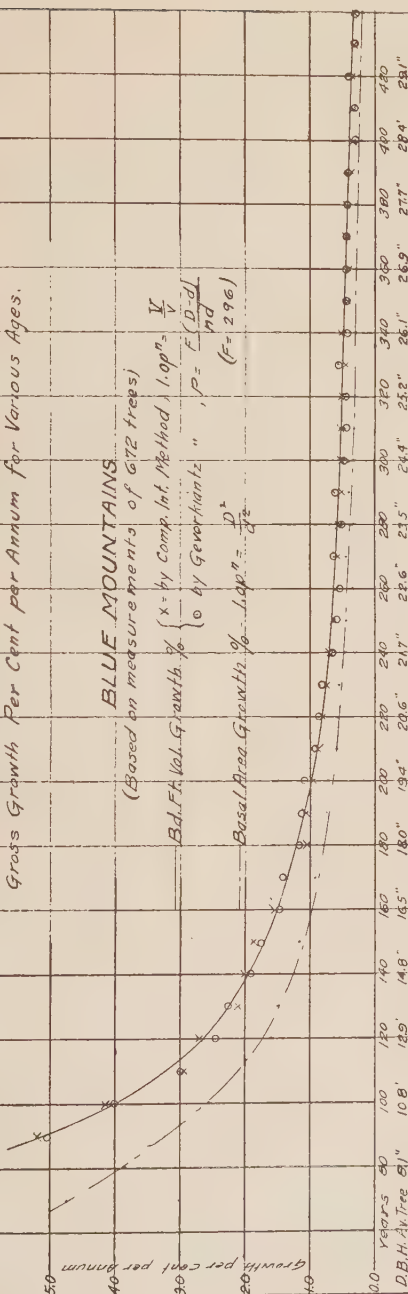 Gross Growth Per Cent per Annum for Various Ages.
BLUE MOUNTAINS
(Based on measurements of 672 trees)
Bd. Ft. Vol. Growth % { x = by Comp. Int. Method, 1.0pⁿ = V/v
⊙ by Gevorkiantz " , P = F(D-d)/nd
(F = 296)
Basal Area Growth % 1.0pⁿ = D²/d²
Growth per cent per Annum
5.0
4.0
3.0
2.0
1.0
0.0
Years 80 100 120 140 160 180 200 220 240 260 280 300 320 340 360 380 400 420
D.B.H. Av. Tree 8.1" 10.8' 12.9' 14.8' 16.5" 18.0" 19.4" 20.6" 21.7" 22.6" 23.5" 24.4" 25.2" 26.1" 26.9" 27.7" 28.4' 29.1"